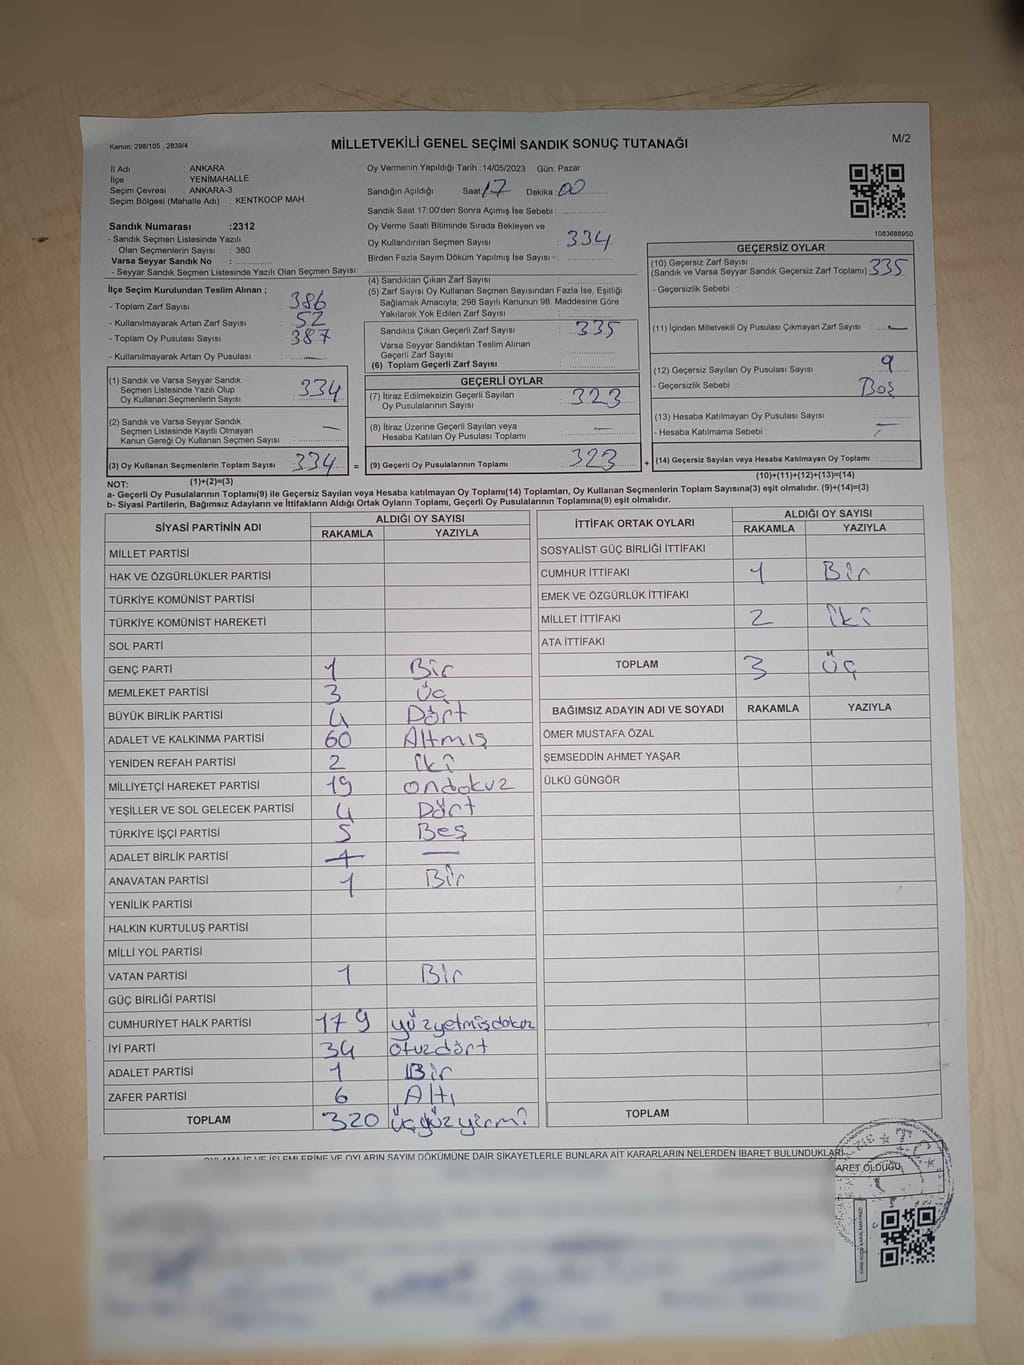 Kanun; 298/105 , 2839/4
MİLLETVEKİLİ GENEL SEÇİMİ SANDIK SONUÇ TUTANAĞI
M/2
İl Adı : ANKARA
İlçe : YENİMAHALLE
Seçim Çevresi : ANKARA-3
Seçim Bölgesi (Mahalle Adı) : KENTKOOP MAH.
Oy Vermenin Yapıldığı Tarih :14/05/2023 Gün: Pazar
Sandığın Açıldığı Saat:17 Dakika:00
Sandık Saat 17:00'den Sonra Açımış İse Sebebi :
Sandık Numarası :2312
- Sandık Seçmen Listesinde Yazılı
Olan Seçmenlerin Sayısı : 380
Varsa Seyyar Sandık No :
- Seyyar Sandık Seçmen Listesinde Yazılı Olan Seçmen Sayısı:
Oy Verme Saati Bitiminde Sırada Bekleyen ve
Oy Kullandırılan Seçmen Sayısı : 334
Birden Fazla Sayım Döküm Yapılmış İse Sayısı :
1083688950
İlçe Seçim Kurulundan Teslim Alınan ;
- Toplam Zarf Sayısı : 386
- Kullanılmayarak Artan Zarf Sayısı : 52
- Toplam Oy Pusulası Sayısı : 387
- Kullanılmayarak Artan Oy Pusulası : —
(1) Sandık ve Varsa Seyyar Sandık
Seçmen Listesinde Yazılı Olup
Oy Kullanan Seçmenlerin Sayısı : 334
(2) Sandık ve Varsa Seyyar Sandık
Seçmen Listesinde Kayıtlı Olmayan
Kanun Gereği Oy Kullanan Seçmen Sayısı : —
(3) Oy Kullanan Seçmenlerin Toplam Sayısı 334
(1)+(2)=(3)
(4) Sandıktan Çıkan Zarf Sayısı :
(5) Zarf Sayısı Oy Kullanan Seçmen Sayısından Fazla İse, Eşitliği
Sağlamak Amacıyla; 298 Sayılı Kanunun 98. Maddesine Göre
Yakılarak Yok Edilen Zarf Sayısı :
Sandıkta Çıkan Geçerli Zarf Sayısı : 335
Varsa Seyyar Sandıktan Teslim Alınan
Geçerli Zarf Sayısı
(6) Toplam Geçerli Zarf Sayısı :
GEÇERLİ OYLAR
(7) İtiraz Edilmeksizin Geçerli Sayılan
Oy Pusulalarının Sayısı : 323
(8) İtiraz Üzerine Geçerli Sayılan veya
Hesaba Katılan Oy Pusulası Toplamı : —
= (9) Geçerli Oy Pusulalarının Toplamı : 323 +
GEÇERSİZ OYLAR
(10) Geçersiz Zarf Sayısı
(Sandık ve Varsa Seyyar Sandık Geçersiz Zarf Toplamı) 335
- Geçersizlik Sebebi :
(11) İçinden Milletvekili Oy Pusulası Çıkmayan Zarf Sayısı : —
(12) Geçersiz Sayılan Oy Pusulası Sayısı : 9
- Geçersizlik Sebebi : Boş
(13) Hesaba Katılmayan Oy Pusulası Sayısı :
- Hesaba Katılmama Sebebi : —
(14) Geçersiz Sayılan veya Hesaba Katılmayan Oy Toplamı :
(10)+(11)+(12)+(13)=(14)
NOT:
a- Geçerli Oy Pusulalarının Toplamı(9) ile Geçersiz Sayılan veya Hesaba katılmayan Oy Toplamı(14) Toplamları, Oy Kullanan Seçmenlerin Toplam Sayısına(3) eşit olmalıdır. (9)+(14)=(3)
b- Siyasi Partilerin, Bağımsız Adayların ve İttifakların Aldığı Ortak Oyların Toplamı, Geçerli Oy Pusulalarının Toplamına(9) eşit olmalıdır.
SİYASİ PARTİNİN ADI
ALDIĞI OY SAYISI
RAKAMLA YAZIYLA
MİLLET PARTİSİ
HAK VE ÖZGÜRLÜKLER PARTİSİ
TÜRKİYE KOMÜNİST PARTİSİ
TÜRKİYE KOMÜNİST HAREKETİ
SOL PARTİ
GENÇ PARTİ 1 Bir
MEMLEKET PARTİSİ 3 Üç
BÜYÜK BİRLİK PARTİSİ 4 Dört
ADALET VE KALKINMA PARTİSİ 60 Altmış
YENİDEN REFAH PARTİSİ 2 iki
MİLLİYETÇİ HAREKET PARTİSİ 19 ondokuz
YEŞİLLER VE SOL GELECEK PARTİSİ 4 Dört
TÜRKİYE İŞÇİ PARTİSİ 5 Beş
ADALET BİRLİK PARTİSİ —
ANAVATAN PARTİSİ 1 Bir
YENİLİK PARTİSİ
HALKIN KURTULUŞ PARTİSİ
MİLLİ YOL PARTİSİ
VATAN PARTİSİ 1 Bir
GÜÇ BİRLİĞİ PARTİSİ
CUMHURİYET HALK PARTİSİ 179 yüzyetmişdokuz
İYİ PARTİ 34 otuzdört
ADALET PARTİSİ 1 Bir
ZAFER PARTİSİ 6 Altı
TOPLAM 320 üçyüzyirmi
İTTİFAK ORTAK OYLARI
ALDIĞI OY SAYISI
RAKAMLA YAZIYLA
SOSYALİST GÜÇ BİRLİĞİ İTTİFAKI
CUMHUR İTTİFAKI 1 Bir
EMEK VE ÖZGÜRLÜK İTTİFAKI
MİLLET İTTİFAKI 2 iki
ATA İTTİFAKI
TOPLAM 3 üç
BAĞIMSIZ ADAYIN ADI VE SOYADI RAKAMLA YAZIYLA
ÖMER MUSTAFA ÖZAL
ŞEMSEDDİN AHMET YAŞAR
ÜLKÜ GÜNGÖR
TOPLAM
OYLAMA İŞ VE İŞLEMLERİNE VE OYLARIN SAYIM DÖKÜMÜNE DAİR ŞİKAYETLERLE BUNLARA AİT KARARLARIN NELERDEN İBARET BULUNDUKLARI
ARET OLDUĞU